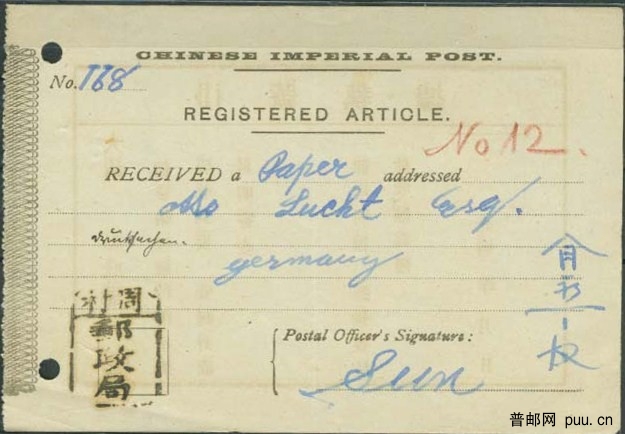 CHINESE IMPERIAL POST.
No. 768
REGISTERED ARTICLE.
No 12.
RECEIVED a Paper addressed
Otto Lucht Esq.
Drucksachen.
Germany
村周
郵政局
Postal Officer's Signature:
Sun
普邮网 puu.cn